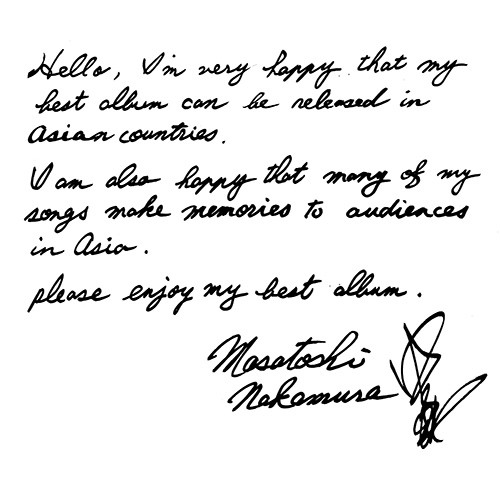 Hello, I'm very happy that my
best album can be released in
Asian countries.
I am also happy that many of my
songs make memories to audiences
in Asia.
please enjoy my best album.
Masatoshi
Nakamura